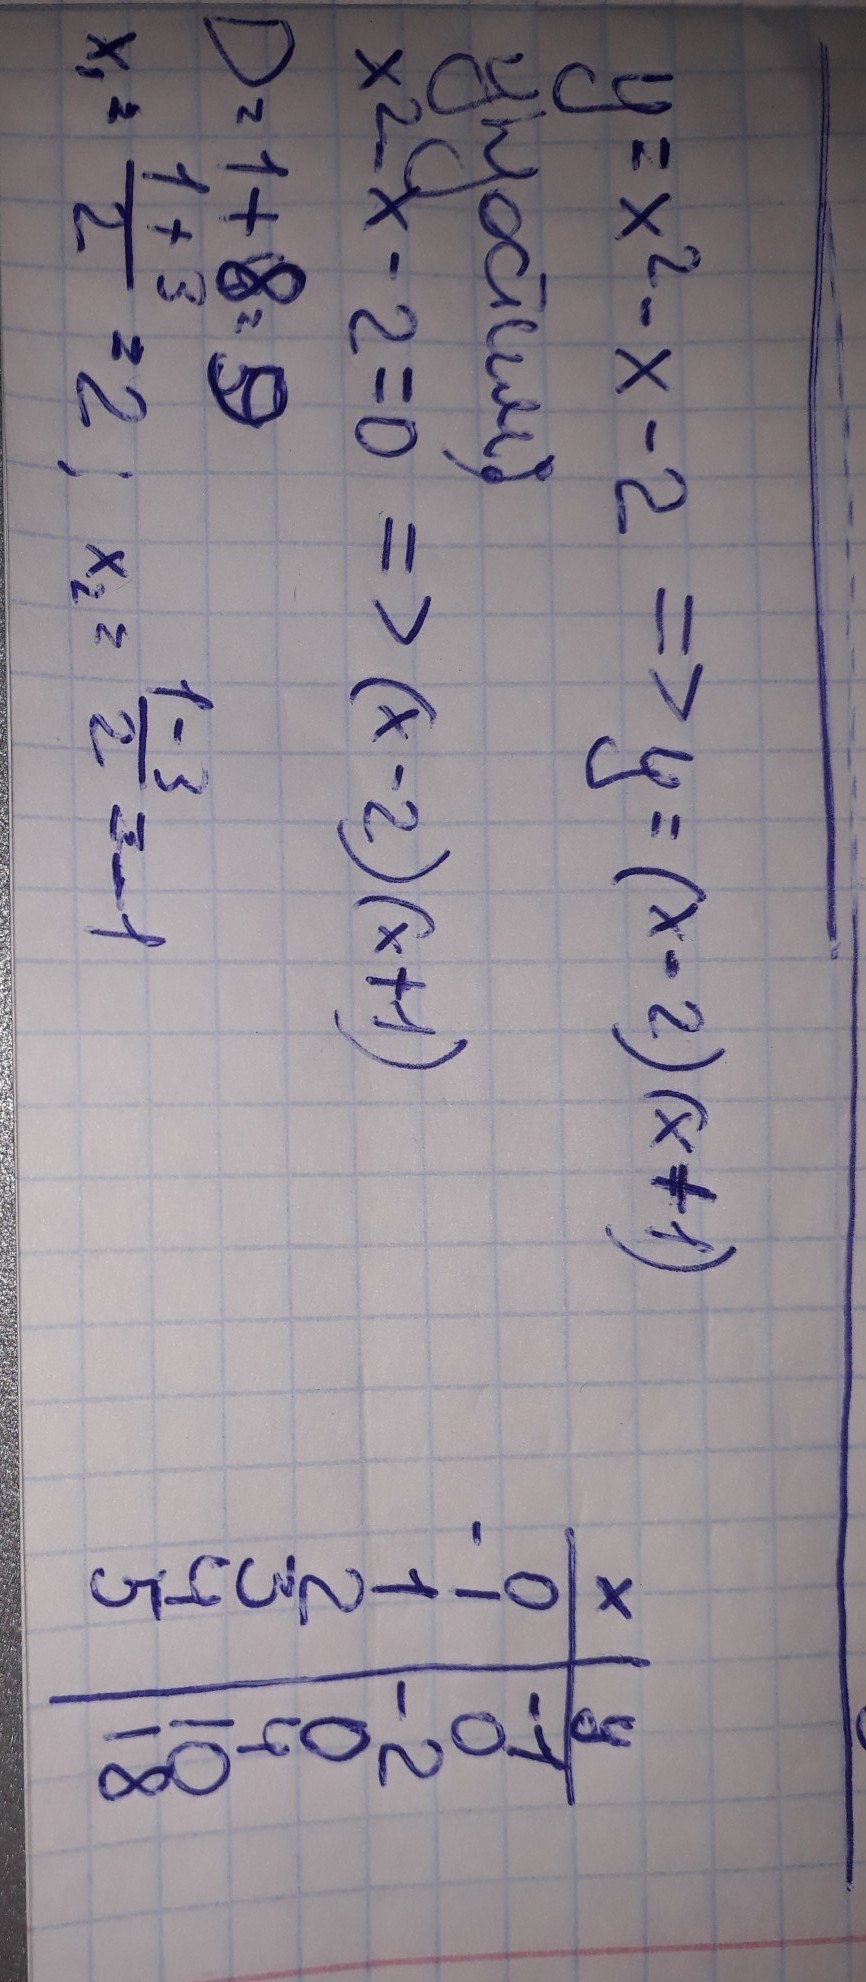 y = x² - x - 2 => y = (x - 2)(x + 1)
упростим;
x² - x - 2 = 0 => (x - 2)(x + 1)
D = 1 + 8 = 9
x₁ = (1 + 3)/2 = 2; x₂ = (1 - 3)/2 = -1
x | y
0 | -1
-1 | 0
1 | -2
2 | 0
3 | 4
4 | 10
5 | 18